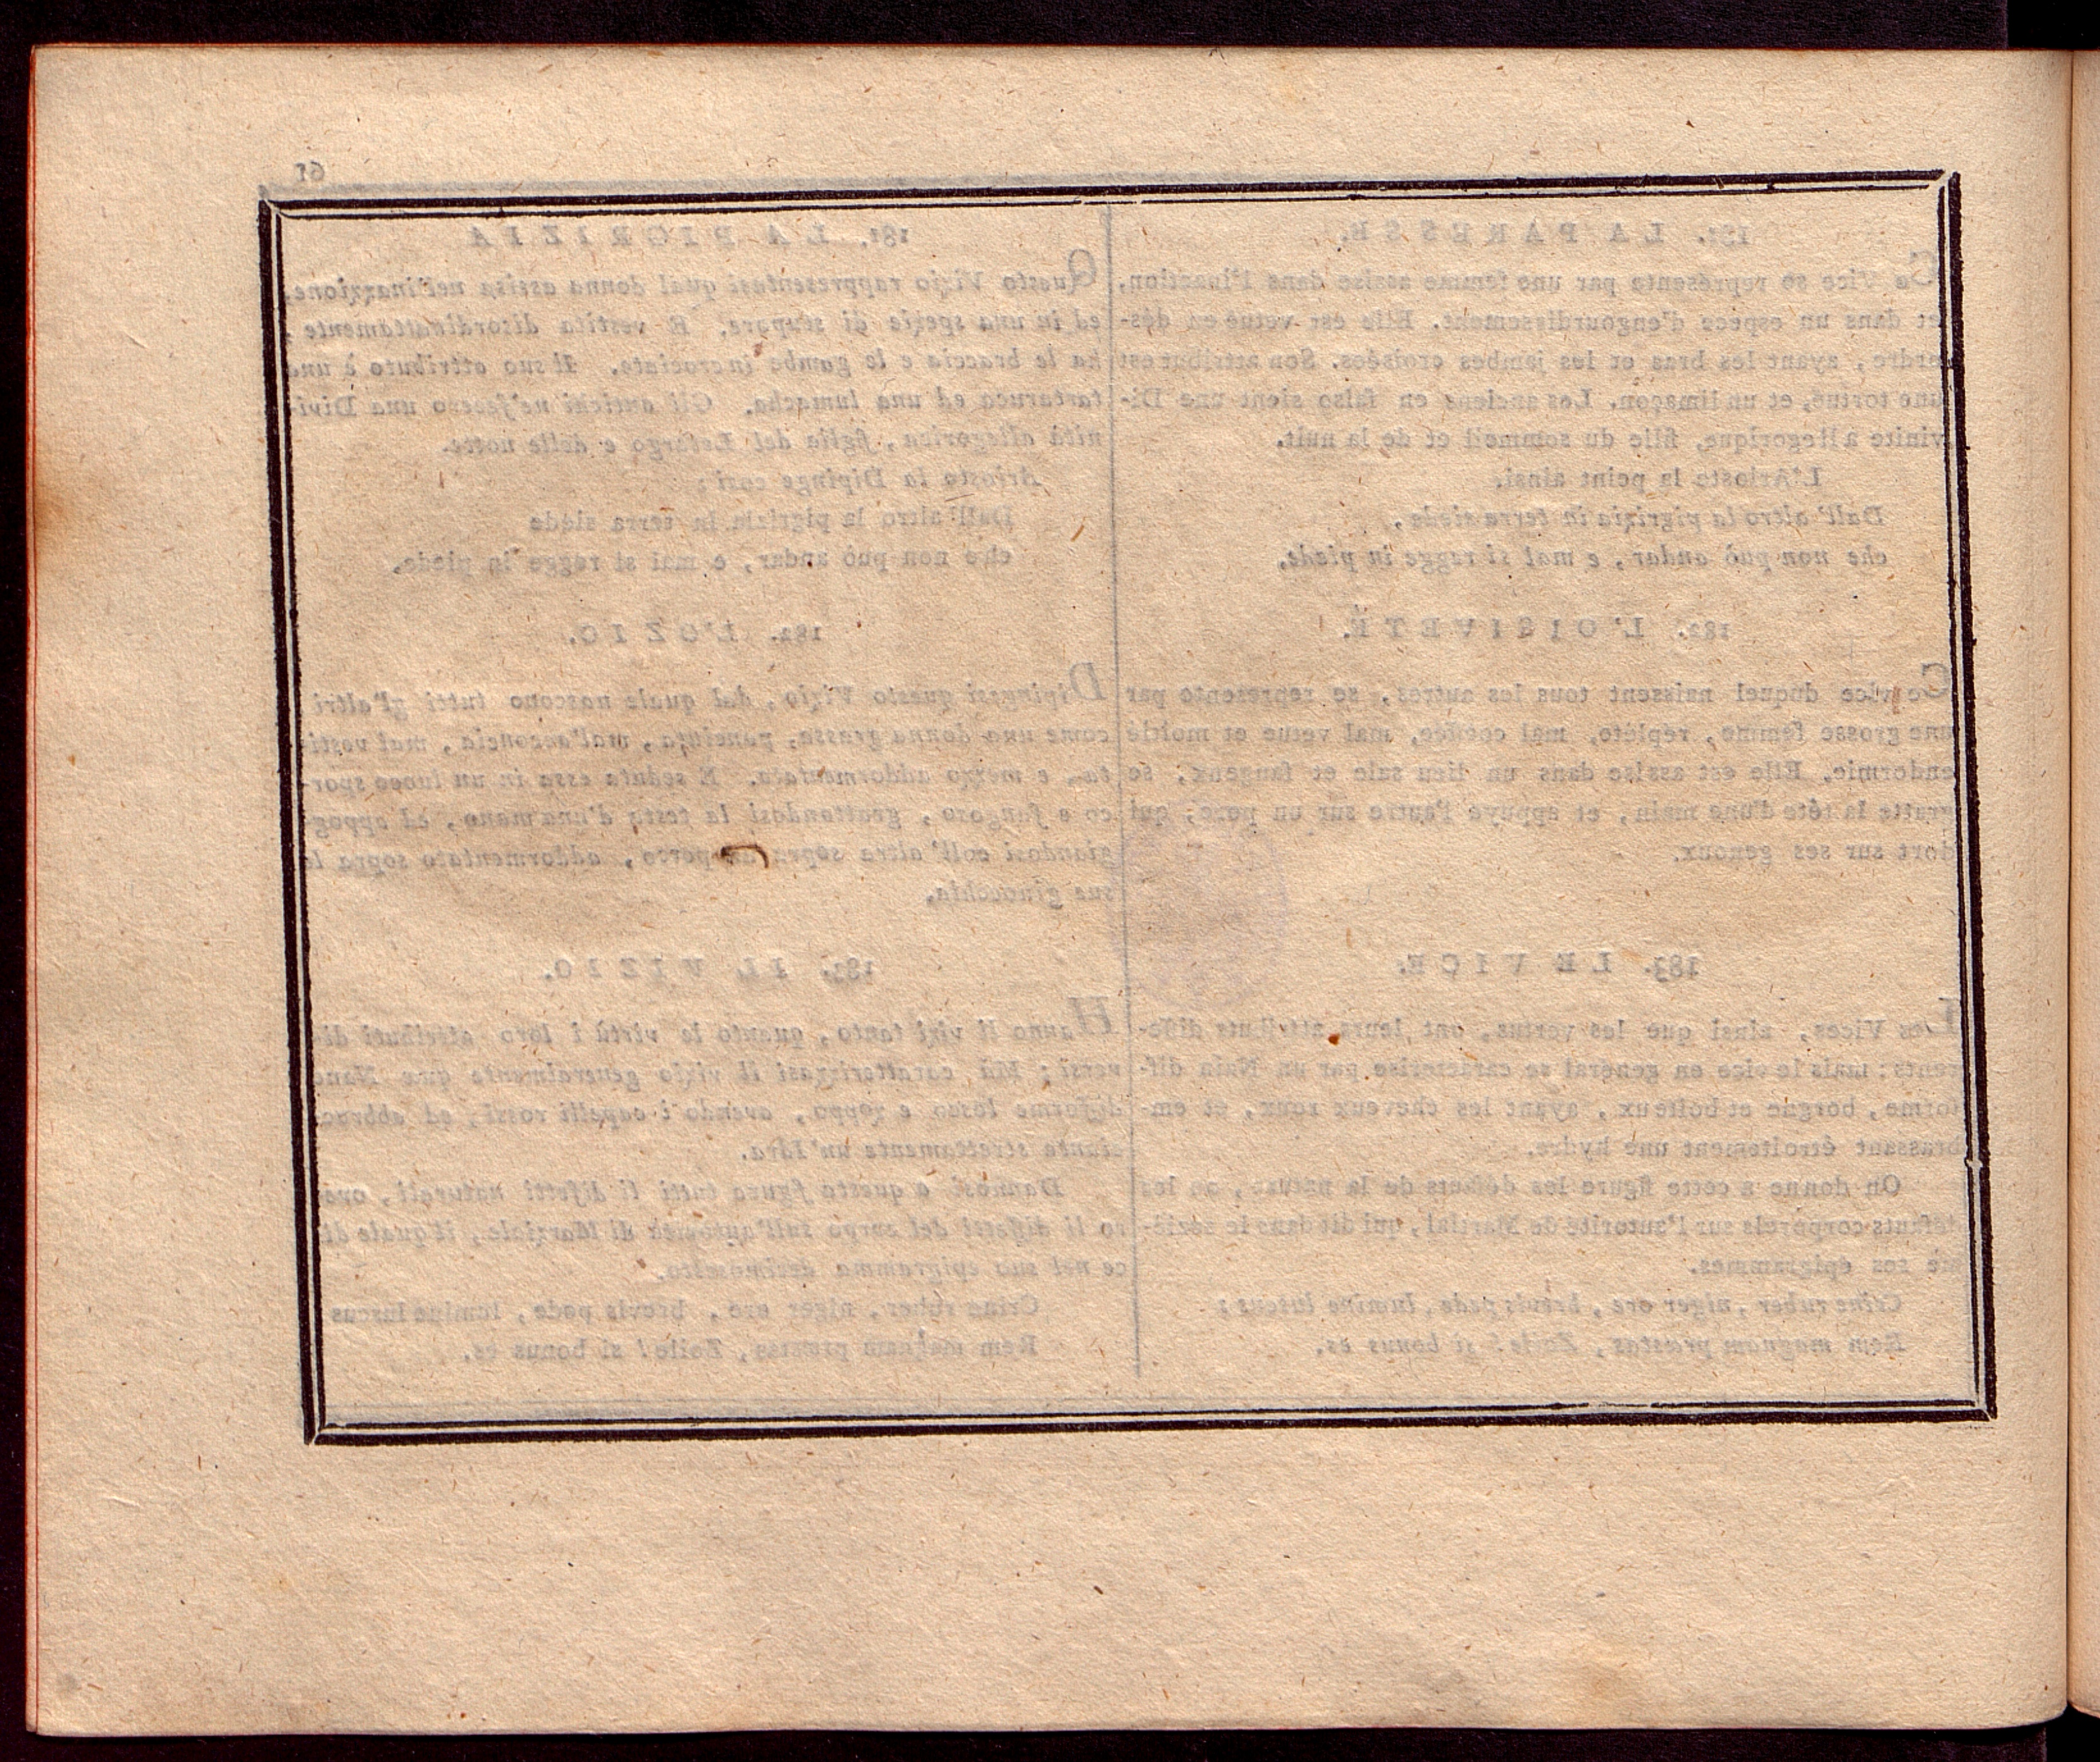 61
181. LA PARESSE.
Ce Vice se représente par une femme assise dans l'inaction,
et dans un espece d'engourdissement. Elle est vetuë en dés-
ordre, ayant les bras et les jambes croisées. Son attribut est
une tortuë, et un limaçon. Les anciens en
vinite allegorique, fille du sommeil et de la nuit.
L'Arioste la peint ainsi.
Dall' altro la pigrizia in terra siede,
che non può andar, e mal si regge in piede.
182. L'OISIVETÉ.
Ce vice duquel naissent tous les autres, se represente par
une grosse femme, repléte, mal coeffée, mal vetue et moitié
endormie. Elle est assise dans un lieu sale et fangeux, se
gratte la tête d'une main, et appuye l'autre sur un porc, qui
dort sur ses genoux.
183. LE VICE.
Les Vices, ainsi que les vertus, ont leurs attributs diffé-
rents: mais le vice en general se caracterise par un Nain dif-
forme, borgne et boiteux, ayant les cheveux roux, et em-
brassant étroitement une hydre.
On donne a cette figure les défauts de la nature, ou les
défauts corporels sur l'autorité de Martial, qui dit dans le
de ses épigrammes.
Crine ruber, niger ore, brevis pede, lumine luscus:
Rem magnam præstas, Zoile! si bonus es.
181. LA PIGRIZIA
Questo Vizio rappresentasi qual donna assisa nell'inazzione,
ed in una spezie di stupore. E vestita disordinattamente,
ha le braccia e le gambe incrociate. Il suo attributo è una
tartaruca ed una lumacha. Gli antichi ne'fecero una Divi-
nità allegorica, figlia del Letargo e della notte.
Ariosto la Dipinge cosi:
Dall' altro la pigrizia in terra siede
che non può andar, e mal si regge in piede.
182. L'OZIO.
Dipingesi questo Vizio, dal quale nascono tutti gl'altri
come una donna grassa, panciuta, mal'acconcia, mal vesti-
ta, e mezzo addormentata. E seduta essa in un luoco spor-
co e fangoso, grattandosi la testa d'una mano, ed appog-
giandosi coll' altra sopra un porco, addormentato sopra le
sue ginocchia.
183. IL VIZIO.
Hanno li vizi tanto, quanto le virtù i loro attributi di-
versi; Mà caratterizzasi il vizio generalmente qua Nano
difforme losco e zoppo, avendo i capelli rossi, ed abbrac-
ciante strettamente un'Idra.
Dannosi a questa figura tutti li difetti naturali, ove-
ro li difetti del corpo sull'autorità di Marziale, il quale di-
ce nel suo epigramma
Crine ruber, niger ore, brevis pede, lumine luscus
Rem magnam præstas, Zoile! si bonus es.